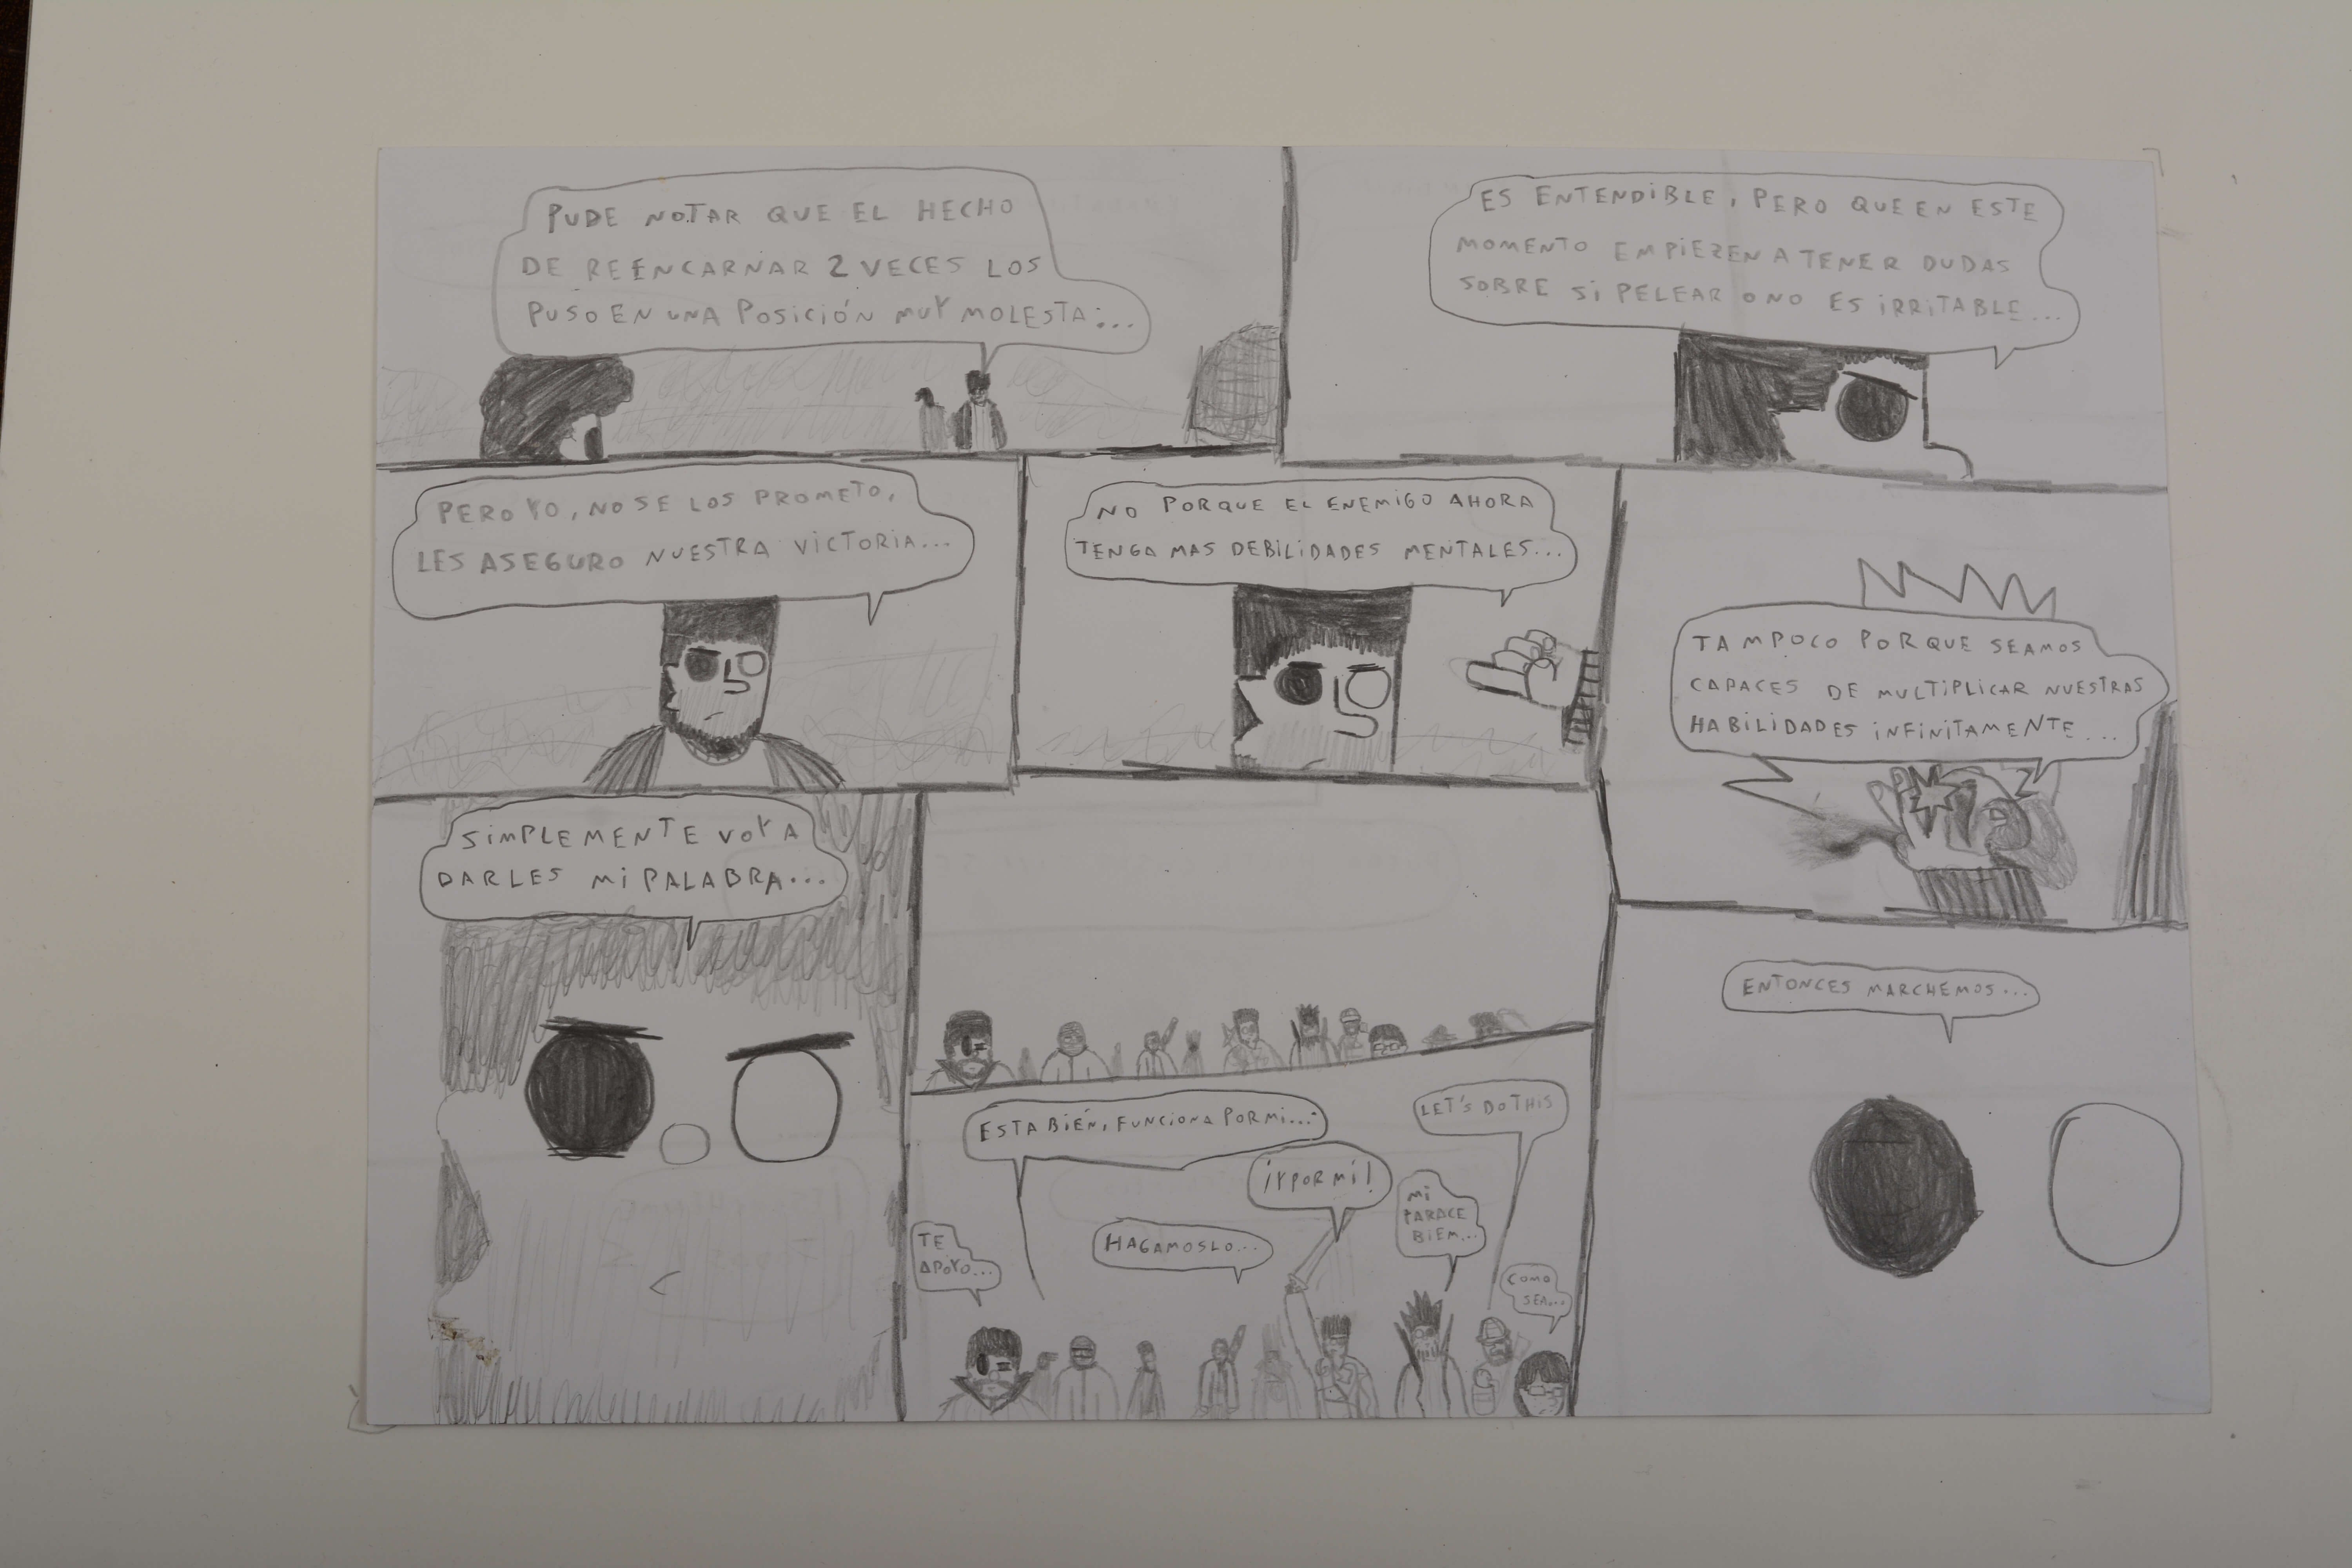 PUDE NOTAR QUE EL HECHO
DE REENCARNAR 2 VECES LOS
PUSO EN UNA POSICIÓN MUY MOLESTA...
ES ENTENDIBLE, PERO QUE EN ESTE
MOMENTO EMPIEZEN A TENER DUDAS
SOBRE SI PELEAR O NO ES IRRITABLE...
PERO YO, NO SE LOS PROMETO,
LES ASEGURO NUESTRA VICTORIA...
NO PORQUE EL ENEMIGO AHORA
TENGA MAS DEBILIDADES MENTALES...
TAMPOCO PORQUE SEAMOS
CAPACES DE MULTIPLICAR NUESTRAS
HABILIDADES INFINITAMENTE...
SIMPLEMENTE VOY A
DARLES MI PALABRA...
ESTA BIÉN, FUNCIONA POR MI...
LET'S DO THIS
¡Y POR MÍ!
MI
PARACE
BIEM...
TE
APOYO...
HAGAMOSLO...
COMO
SEA...
ENTONCES MARCHEMOS...